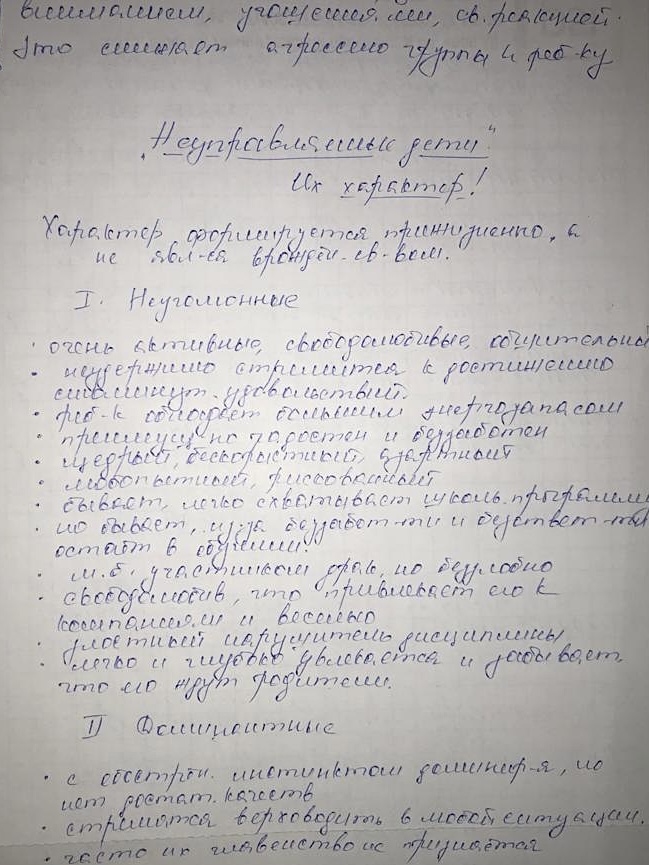 вниманием, угощениями, св. реакцией.
Это снижает агрессию группы к реб-ку
„Неуправляемые дети"
Их характер!
Характер формируется прижизненно, а
не явл-ся врожден. св-вом.
I. Неугомонные
· очень активные, свободолюбивые, общительны
· неудержимо стремится к достижению
сиюминут. удовольствий.
· реб-к обладает большим энергозапасом
· преимущ-но радостен и беззаботен
· щедрый, бескорыстный, азартный
· любопытный, рискованный
· бывает, легко схватывает школь. программ
· но бывает, из-за беззабот-ти и безответ-ти
остаёт в обучении.
· м.б. участником драк, но беззлобно
· свободолюбив, что привлекает его к
компаниям и веселью
· злостный нарушитель дисциплины
· легко и глубоко увлекается и забывает,
что его ждут родители.
II Доминантные
· с обострён. инстинктом доминир-я, но
нет достат. качеств
· стремятся верховодить в любой ситуации.
· часто их главенство не признаётся